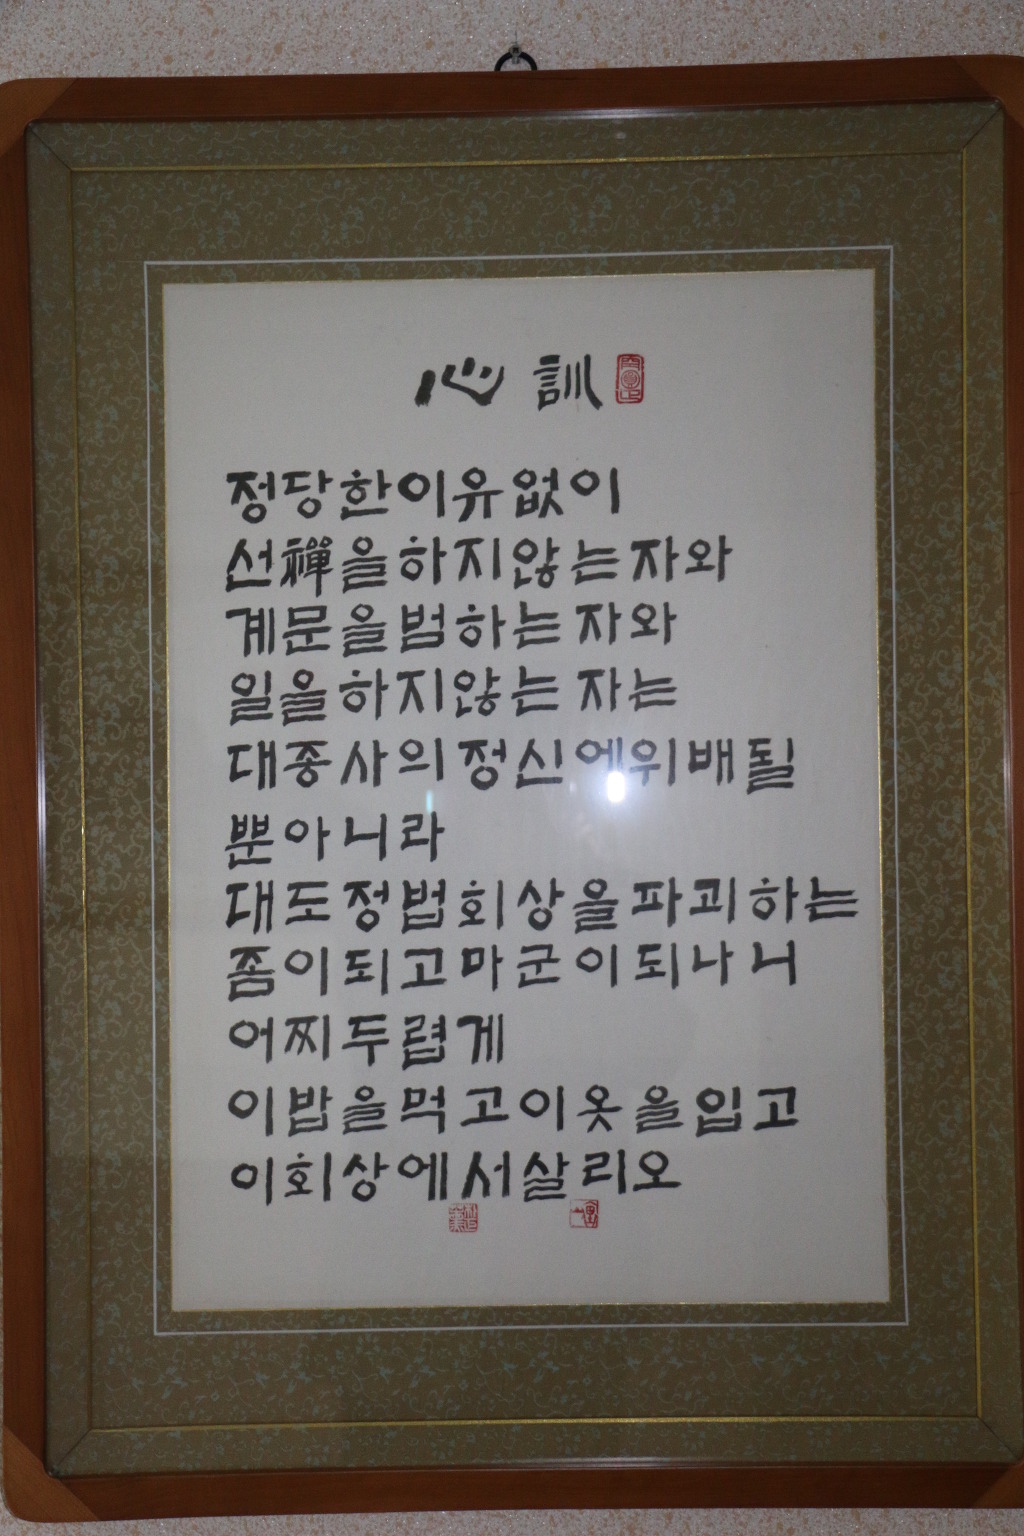 心訓
정당한이유없이
선禪을하지않는자와
계문을범하는자와
일을하지않는자는
대종사의정신에위배될
뿐아니라
대도정법회상을파괴하는
좀이되고마군이되나니
어찌두렵게
이밥을먹고이옷을입고
이회상에서살리오